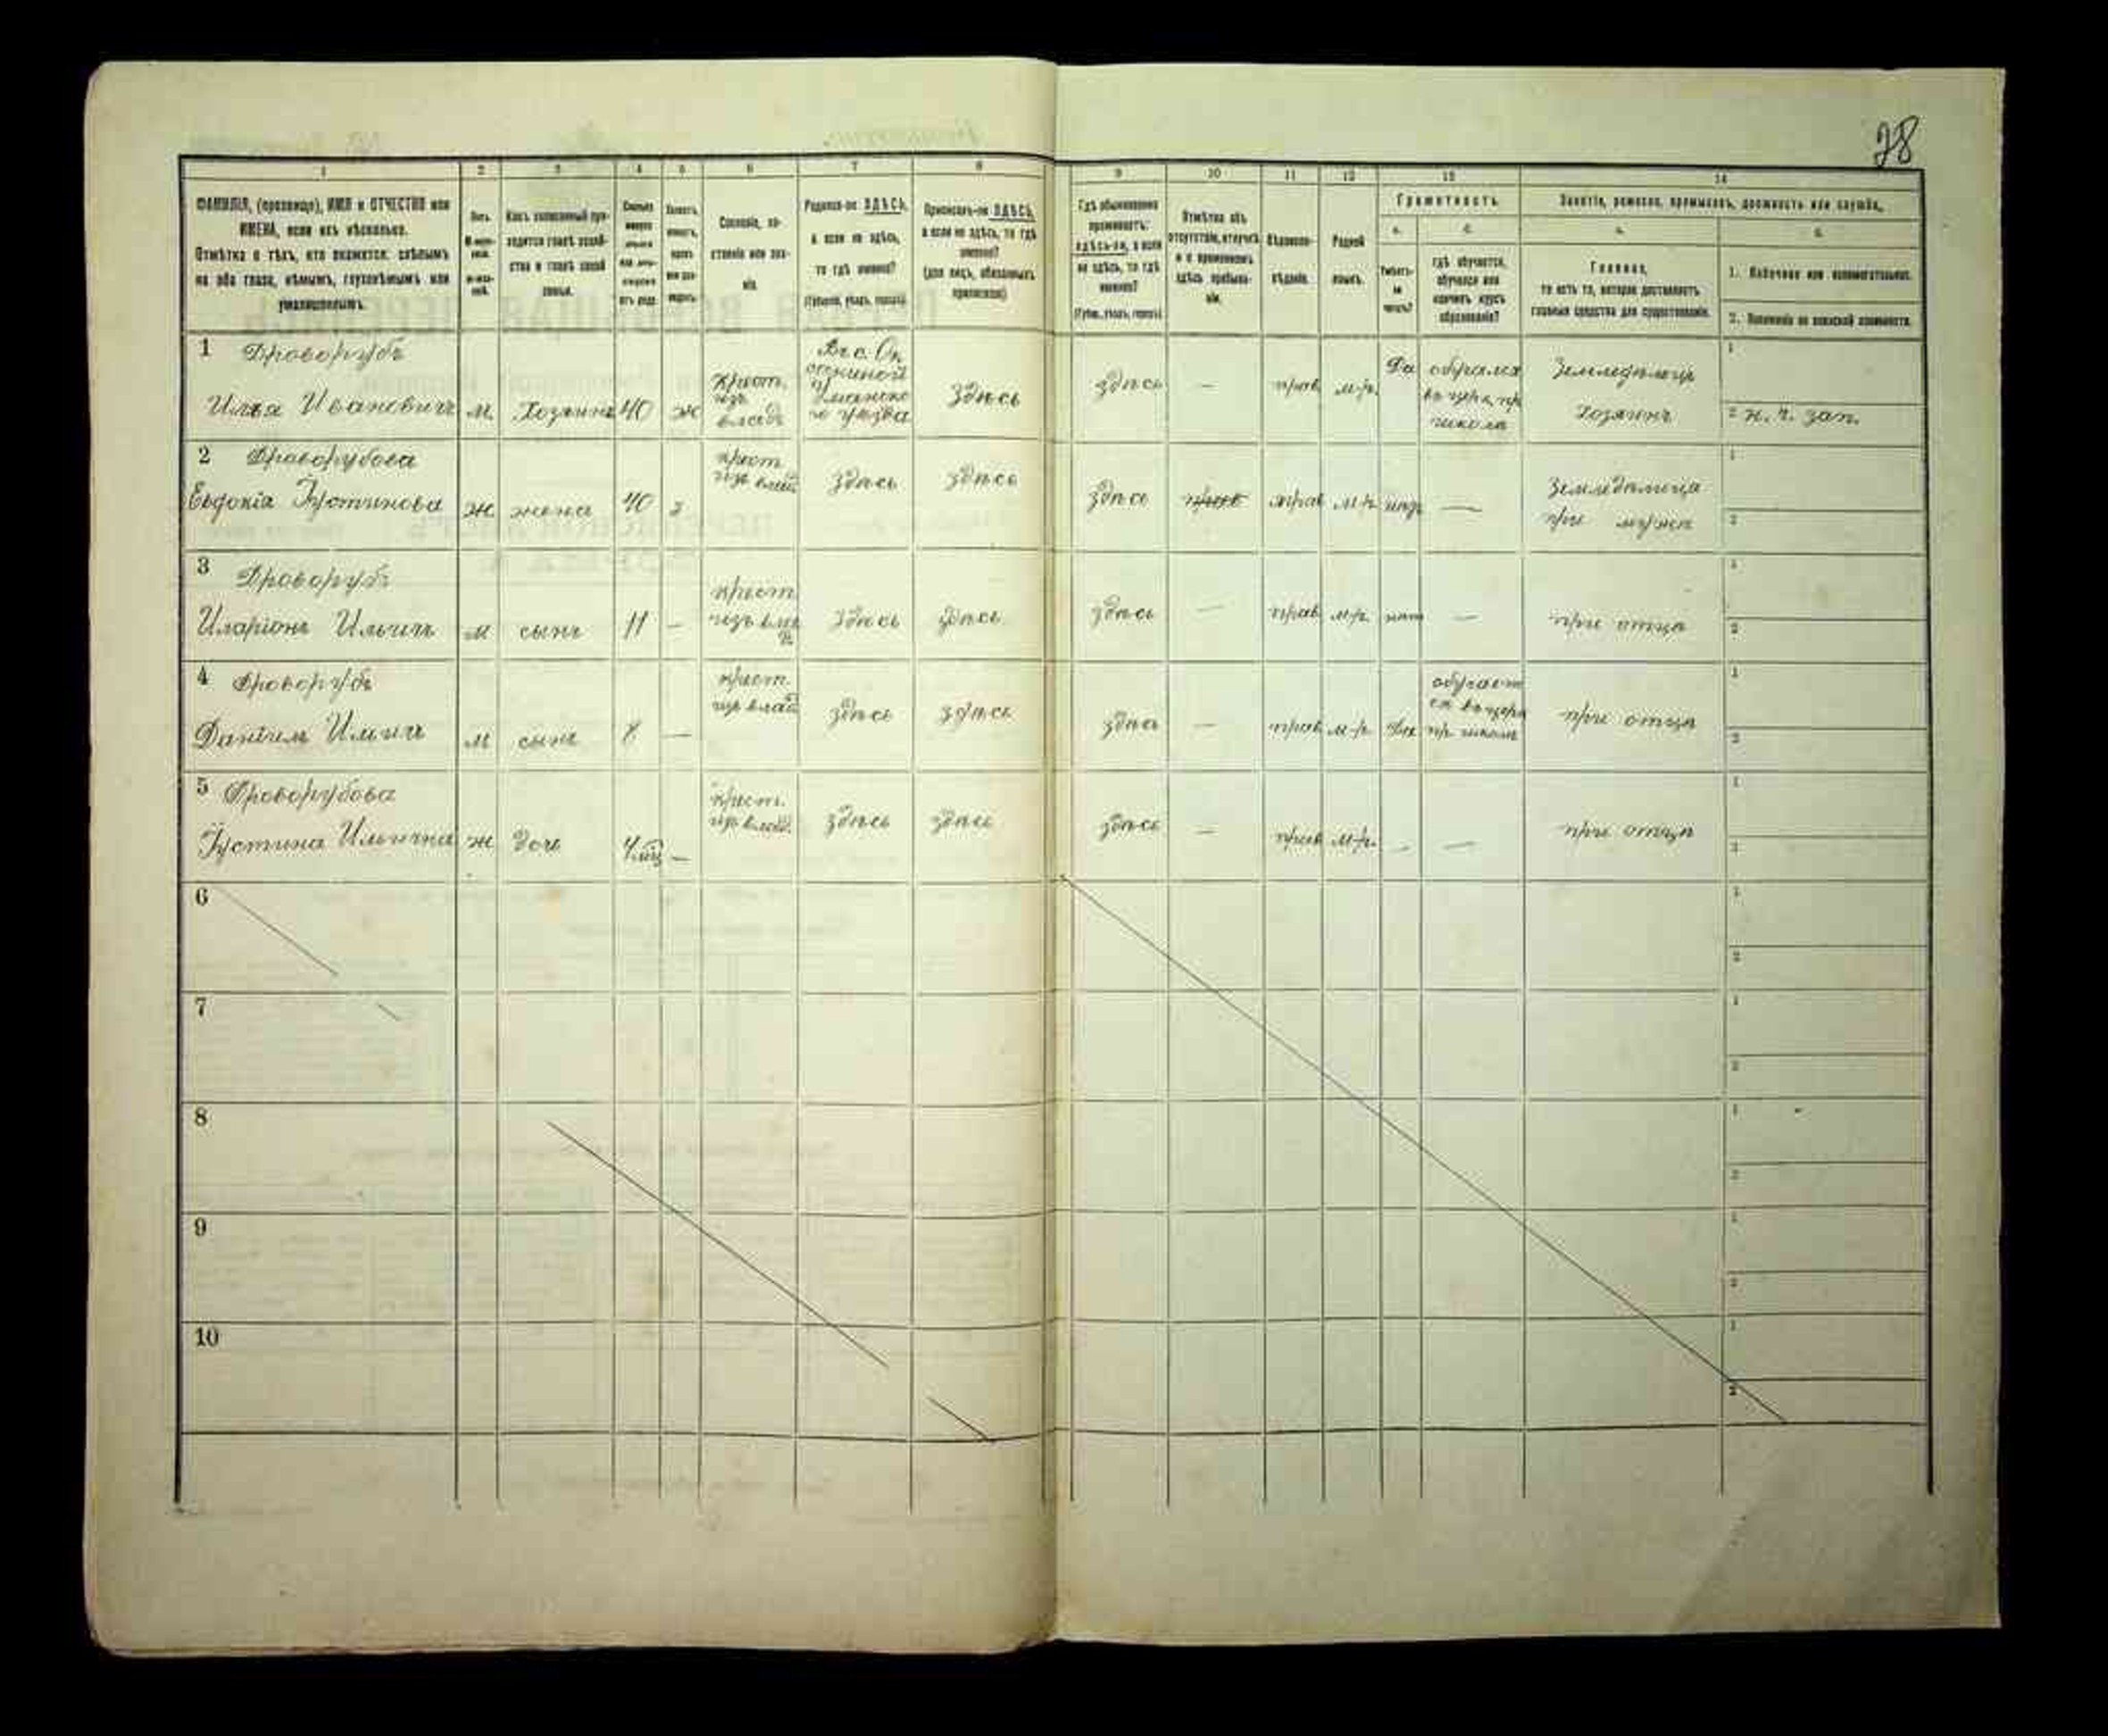 28
1 2 3 4 5 6 7 8 9 10 11 12 13 14
ФАМИЛІЯ, (прозвище), ИМЯ и ОТЧЕСТВО или
ИМЕНА, если ихъ нѣсколько.
Отмѣтка о тѣхъ, кто окажется: слѣпымъ
на оба глаза, нѣмымъ, глухонѣмымъ или
умалишеннымъ.
Полъ.
М-муж-
Ж-жен-
Какъ записанный при-
ходится главѣ хозяй-
ства и главѣ своей
семьи.
Сословіе, со-
стояніе или зва-
ніе.
Родился-ли ЗДѢСЬ,
а если не здѣсь,
то гдѣ именно?
(Губернія, уѣздъ, городъ)
Приписанъ-ли ЗДѢСЬ,
а если не здѣсь, то гдѣ
именно?
(для лицъ, обязанныхъ
припискою)
Гдѣ обыкновенно
проживаетъ:
здѣсь-ли, а если
не здѣсь, то гдѣ
именно?
(Губер., уѣздъ, городъ)
Отмѣтка объ
отсутствіи, отлучкѣ
и о временномъ
здѣсь пребыва-
ніи.
Вѣроиспо-
вѣданіе.
Родной
языкъ.
Грамотность
а. б.
Умѣетъ-
ли
читать?
гдѣ обучается,
обучался или
кончилъ курсъ
образованія?
Занятіе, ремесло, промыселъ, должность или служба,
а. б.
Главное,
то есть то, которое доставляетъ
главныя средства для существованія.
1. Побочное или вспомогательное.
2. Положеніе по воинской повинности.
1 Дроворубъ
Илья Ивановичъ м Хозяинъ 40 ж
Крест. изъ влад.
Въ с.
Уманско-
го уѣзда
Здѣсь здѣсь — прав м-р. Да
обучался
въ церк. пр
школѣ
Земледѣлецъ
хозяинъ
1
2 н. ч. зап.
2 Дроворубова
Евдокія Густинова ж жена 40 з
крест изъ влад
здѣсь здѣсь здѣсь прав м-р —
Земледѣлица
при мужѣ
1
2
3 Дроворубъ
Иларіонъ Ильичъ м сынъ 11 —
крест
изъ вла
д.
здѣсь здѣсь здѣсь — прав м-р нѣт — при отцѣ
1
2
4 Дроворубъ
Даніилъ Ильичъ м сынъ 8 —
крест
изъ влад
здѣсь здѣсь здѣсь — прав м-р Да
обучает
ся въ церк
пр. школѣ
при отцѣ
1
2
5 Дроворубова
Густина Ильична ж дочь 4 мѣц —
крест.
изъ влад.
здѣсь здѣсь здѣсь — прав м-р. — — при отцѣ
1
2
6
1
2
7
1
2
8
1
2
9
1
2
10
1
2